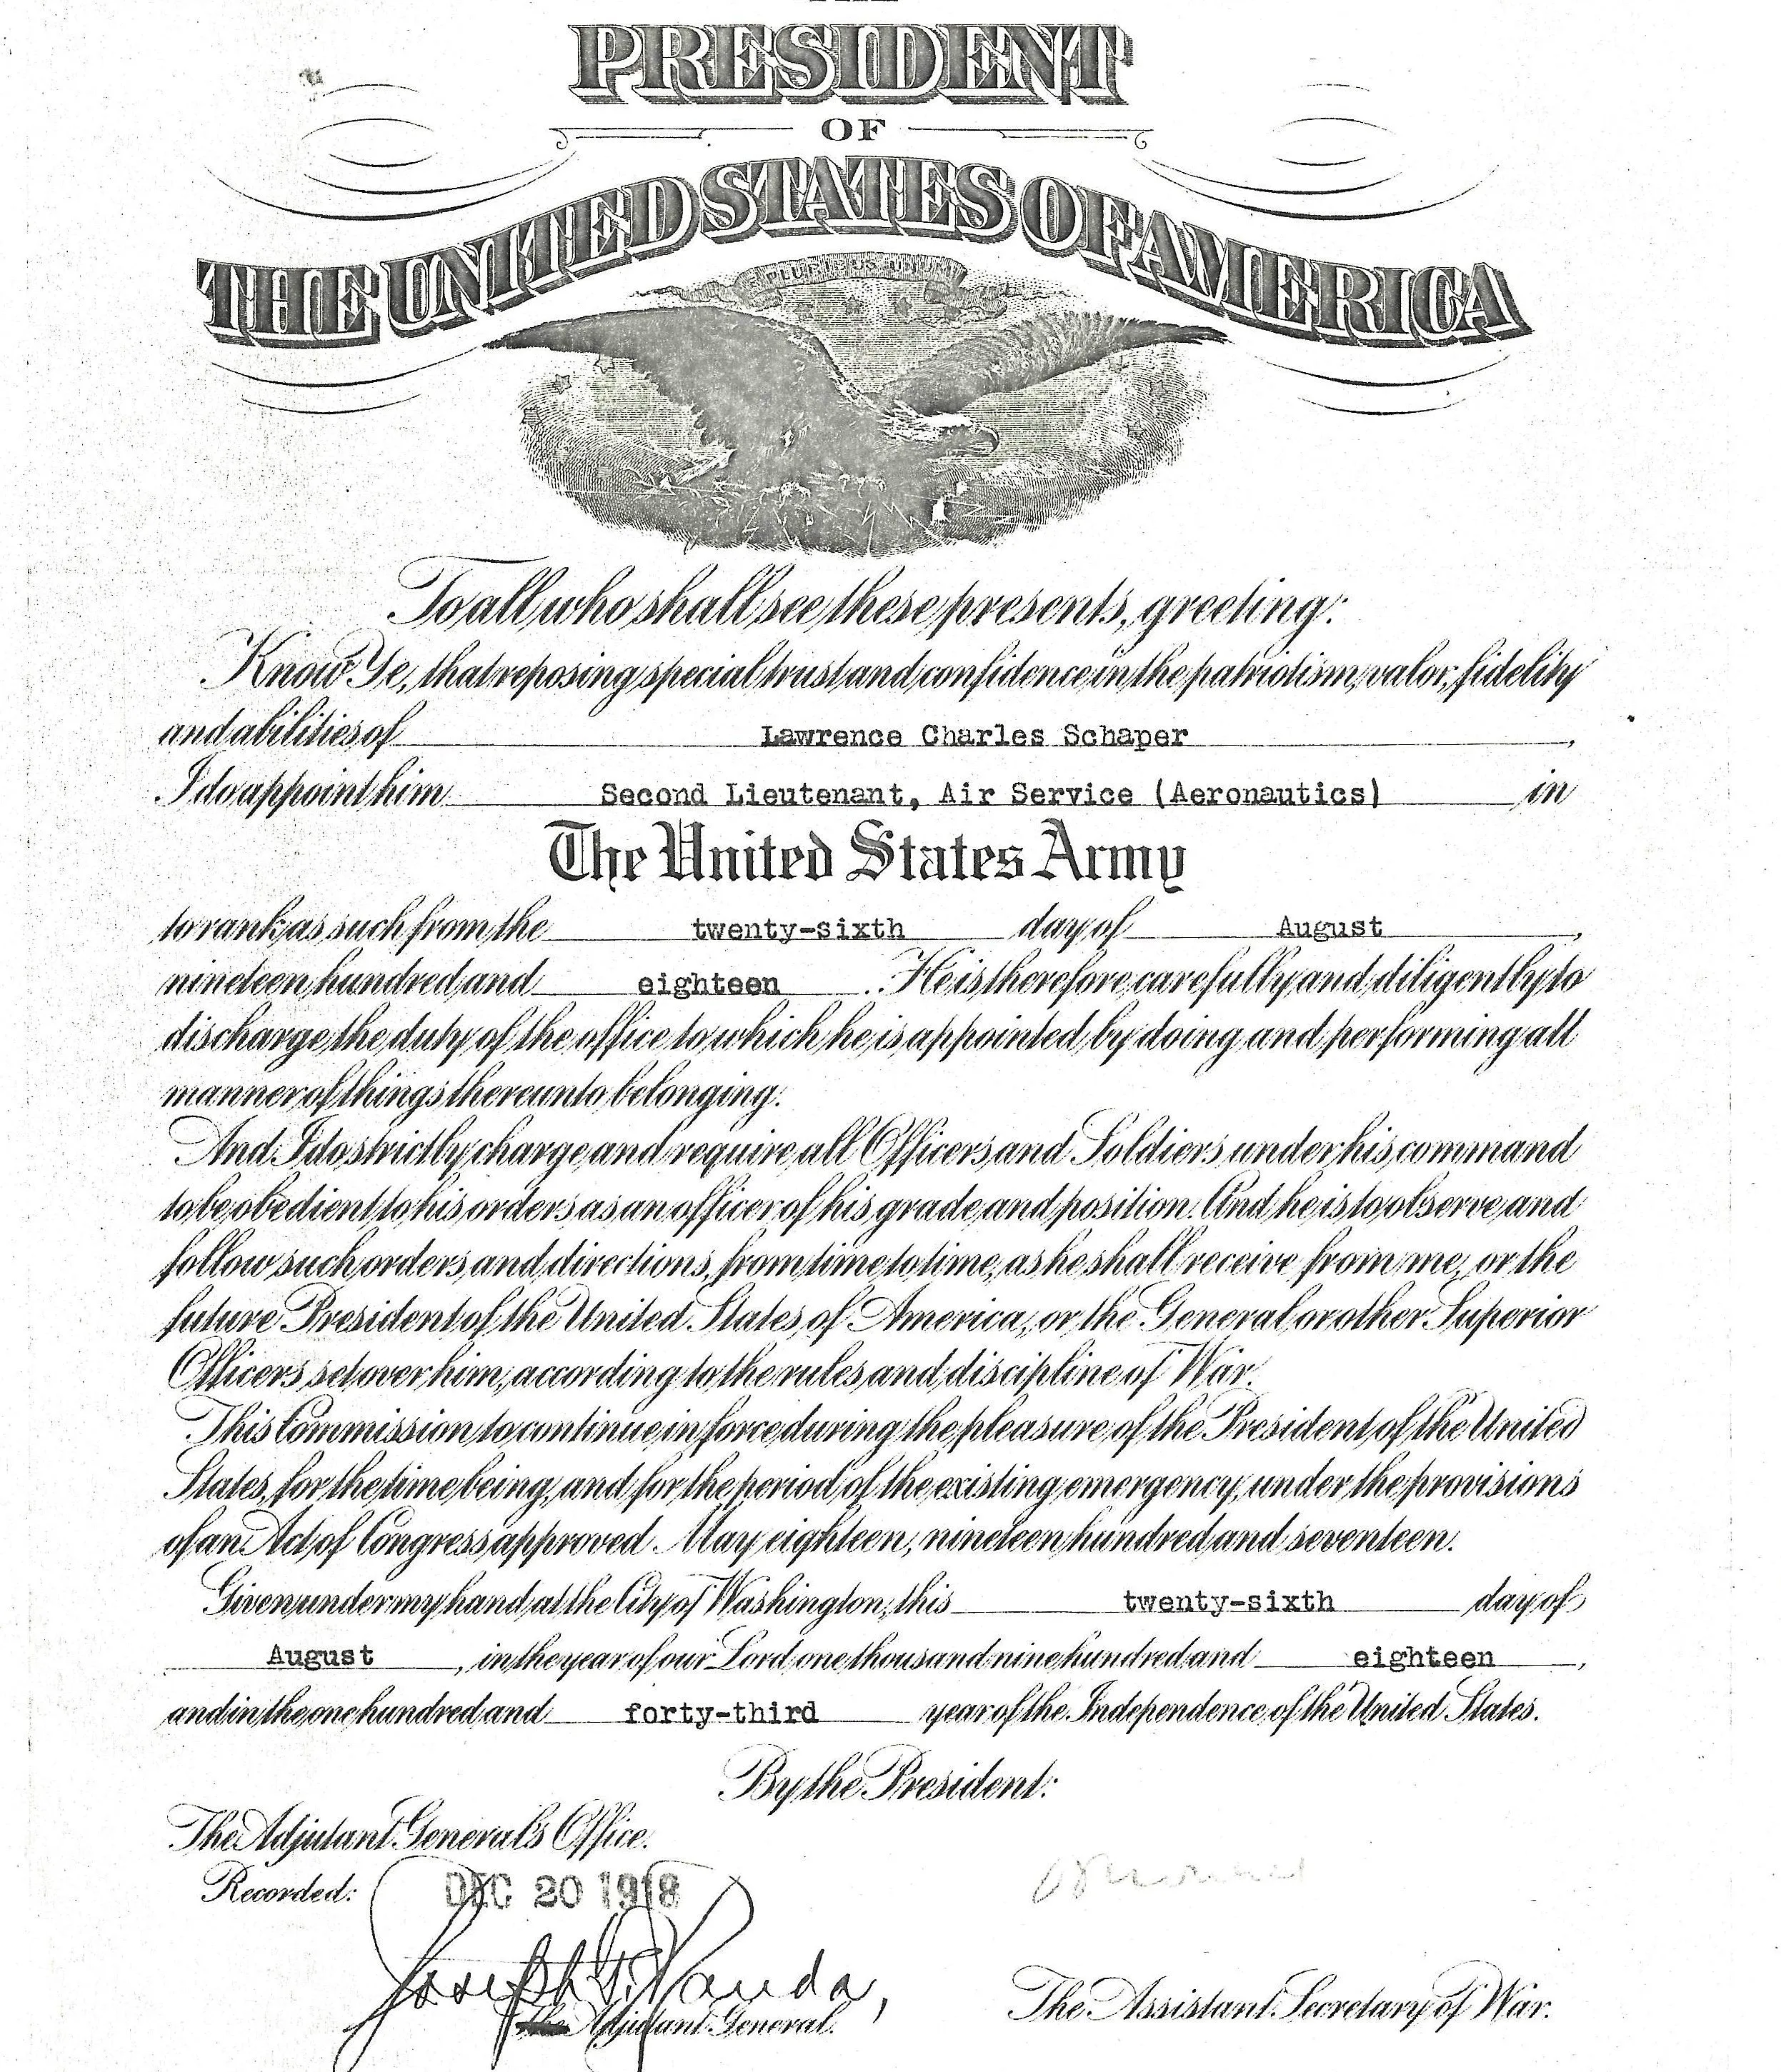 PRESIDENT
OF
THE UNITED STATES OF AMERICA
E PLURIBUS UNUM
To all who shall see these presents, greeting:
Know Ye, that reposing special trust and confidence in the patriotism, valor, fidelity
and abilities of Lawrence Charles Schaper,
I do appoint him Second Lieutenant, Air Service (Aeronautics) in
The United States Army
to rank as such from the twenty-sixth day of August,
nineteen hundred and eighteen. He is therefore carefully and diligently to
discharge the duty of the office to which he is appointed by doing and performing all
manner of things thereunto belonging.
And I do strictly charge and require all Officers and Soldiers under his command
to be obedient to his orders as an officer of his grade and position. And he is to observe and
follow such orders and directions, from time to time, as he shall receive from me, or the
future President of the United States of America, or the General or other Superior
Officers set over him, according to the rules and discipline of War.
This Commission to continue in force during the pleasure of the President of the United
States, for the time being, and for the period of the existing emergency, under the provisions
of an Act of Congress approved May eighteen, nineteen hundred and seventeen.
Given under my hand at the City of Washington, this twenty-sixth day of
August, in the year of our Lord one thousand nine hundred and eighteen,
and in the one hundred and forty-third year of the Independence of the United States.
By the President:
The Adjutant General's Office.
Recorded: DEC 20 1918
Joseph
Adjutant General.
The Assistant Secretary of War.